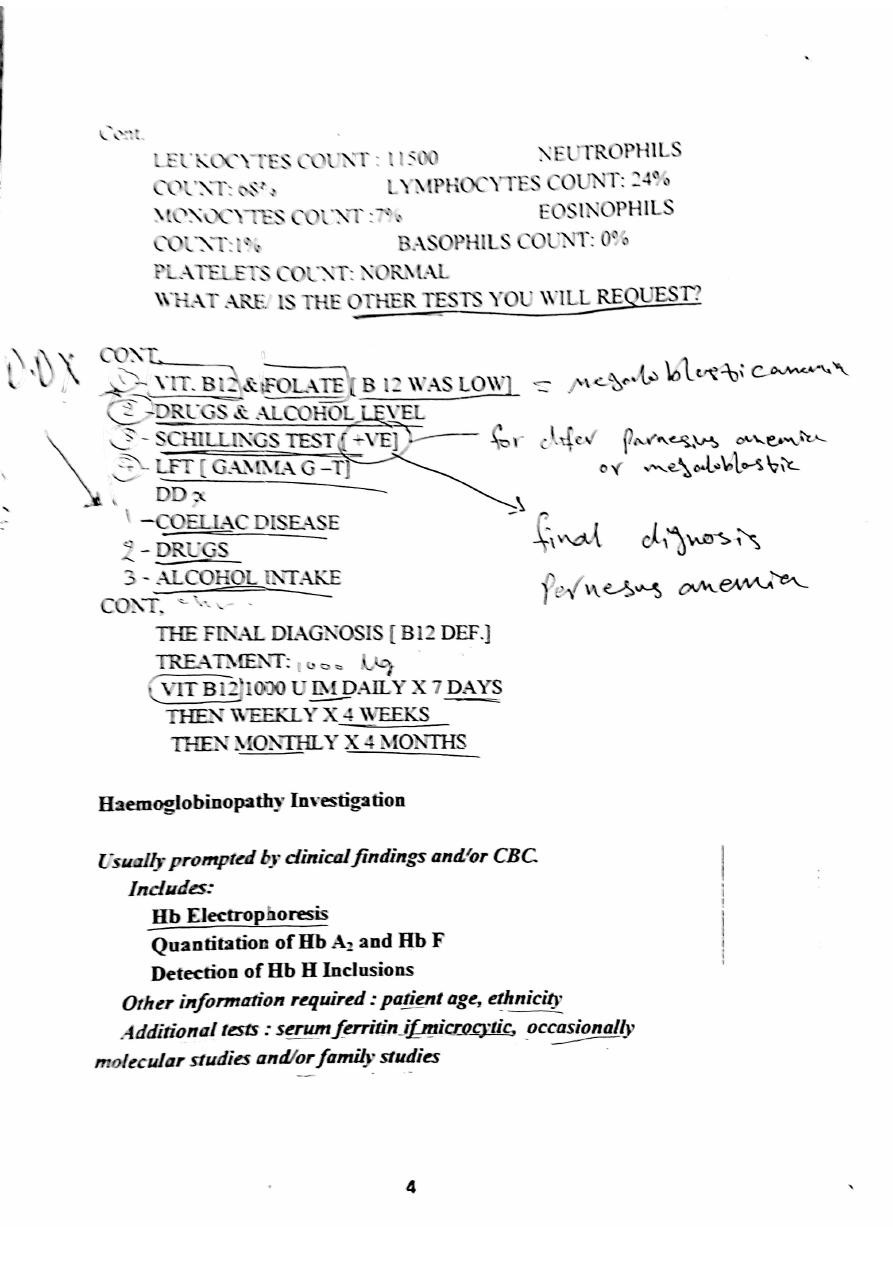 Cont.
LEUKOCYTES COUNT : 11500 NEUTROPHILS
COUNT: 68% LYMPHOCYTES COUNT: 24%
MONOCYTES COUNT :7% EOSINOPHILS
COUNT:1% BASOPHILS COUNT: 0%
PLATELETS COUNT: NORMAL
WHAT ARE/ IS THE OTHER TESTS YOU WILL REQUEST?
CONT.
D.DX
1 - VIT. B12 & FOLATE [ B 12 WAS LOW] = megaloblastic anemia
2 - DRUGS & ALCOHOL LEVEL
3 - SCHILLINGS TEST [ +VE] for difer parnesius anemia
or megaloblastic
4 - LFT [ GAMMA G –T]
DD x
1 – COELIAC DISEASE
final dignosis
2 - DRUGS
3 - ALCOHOL INTAKE
Pernesus anemia
CONT.
THE FINAL DIAGNOSIS [ B12 DEF.]
TREATMENT: 1000 Ug
VIT B12 1000 U IM DAILY X 7 DAYS
THEN WEEKLY X 4 WEEKS
THEN MONTHLY X 4 MONTHS
Haemoglobinopathy Investigation
Usually prompted by clinical findings and/or CBC.
Includes:
Hb Electrophoresis
Quantitation of Hb A₂ and Hb F
Detection of Hb H Inclusions
Other information required : patient age, ethnicity
Additional tests : serum ferritin if microcytic, occasionally
molecular studies and/or family studies
4